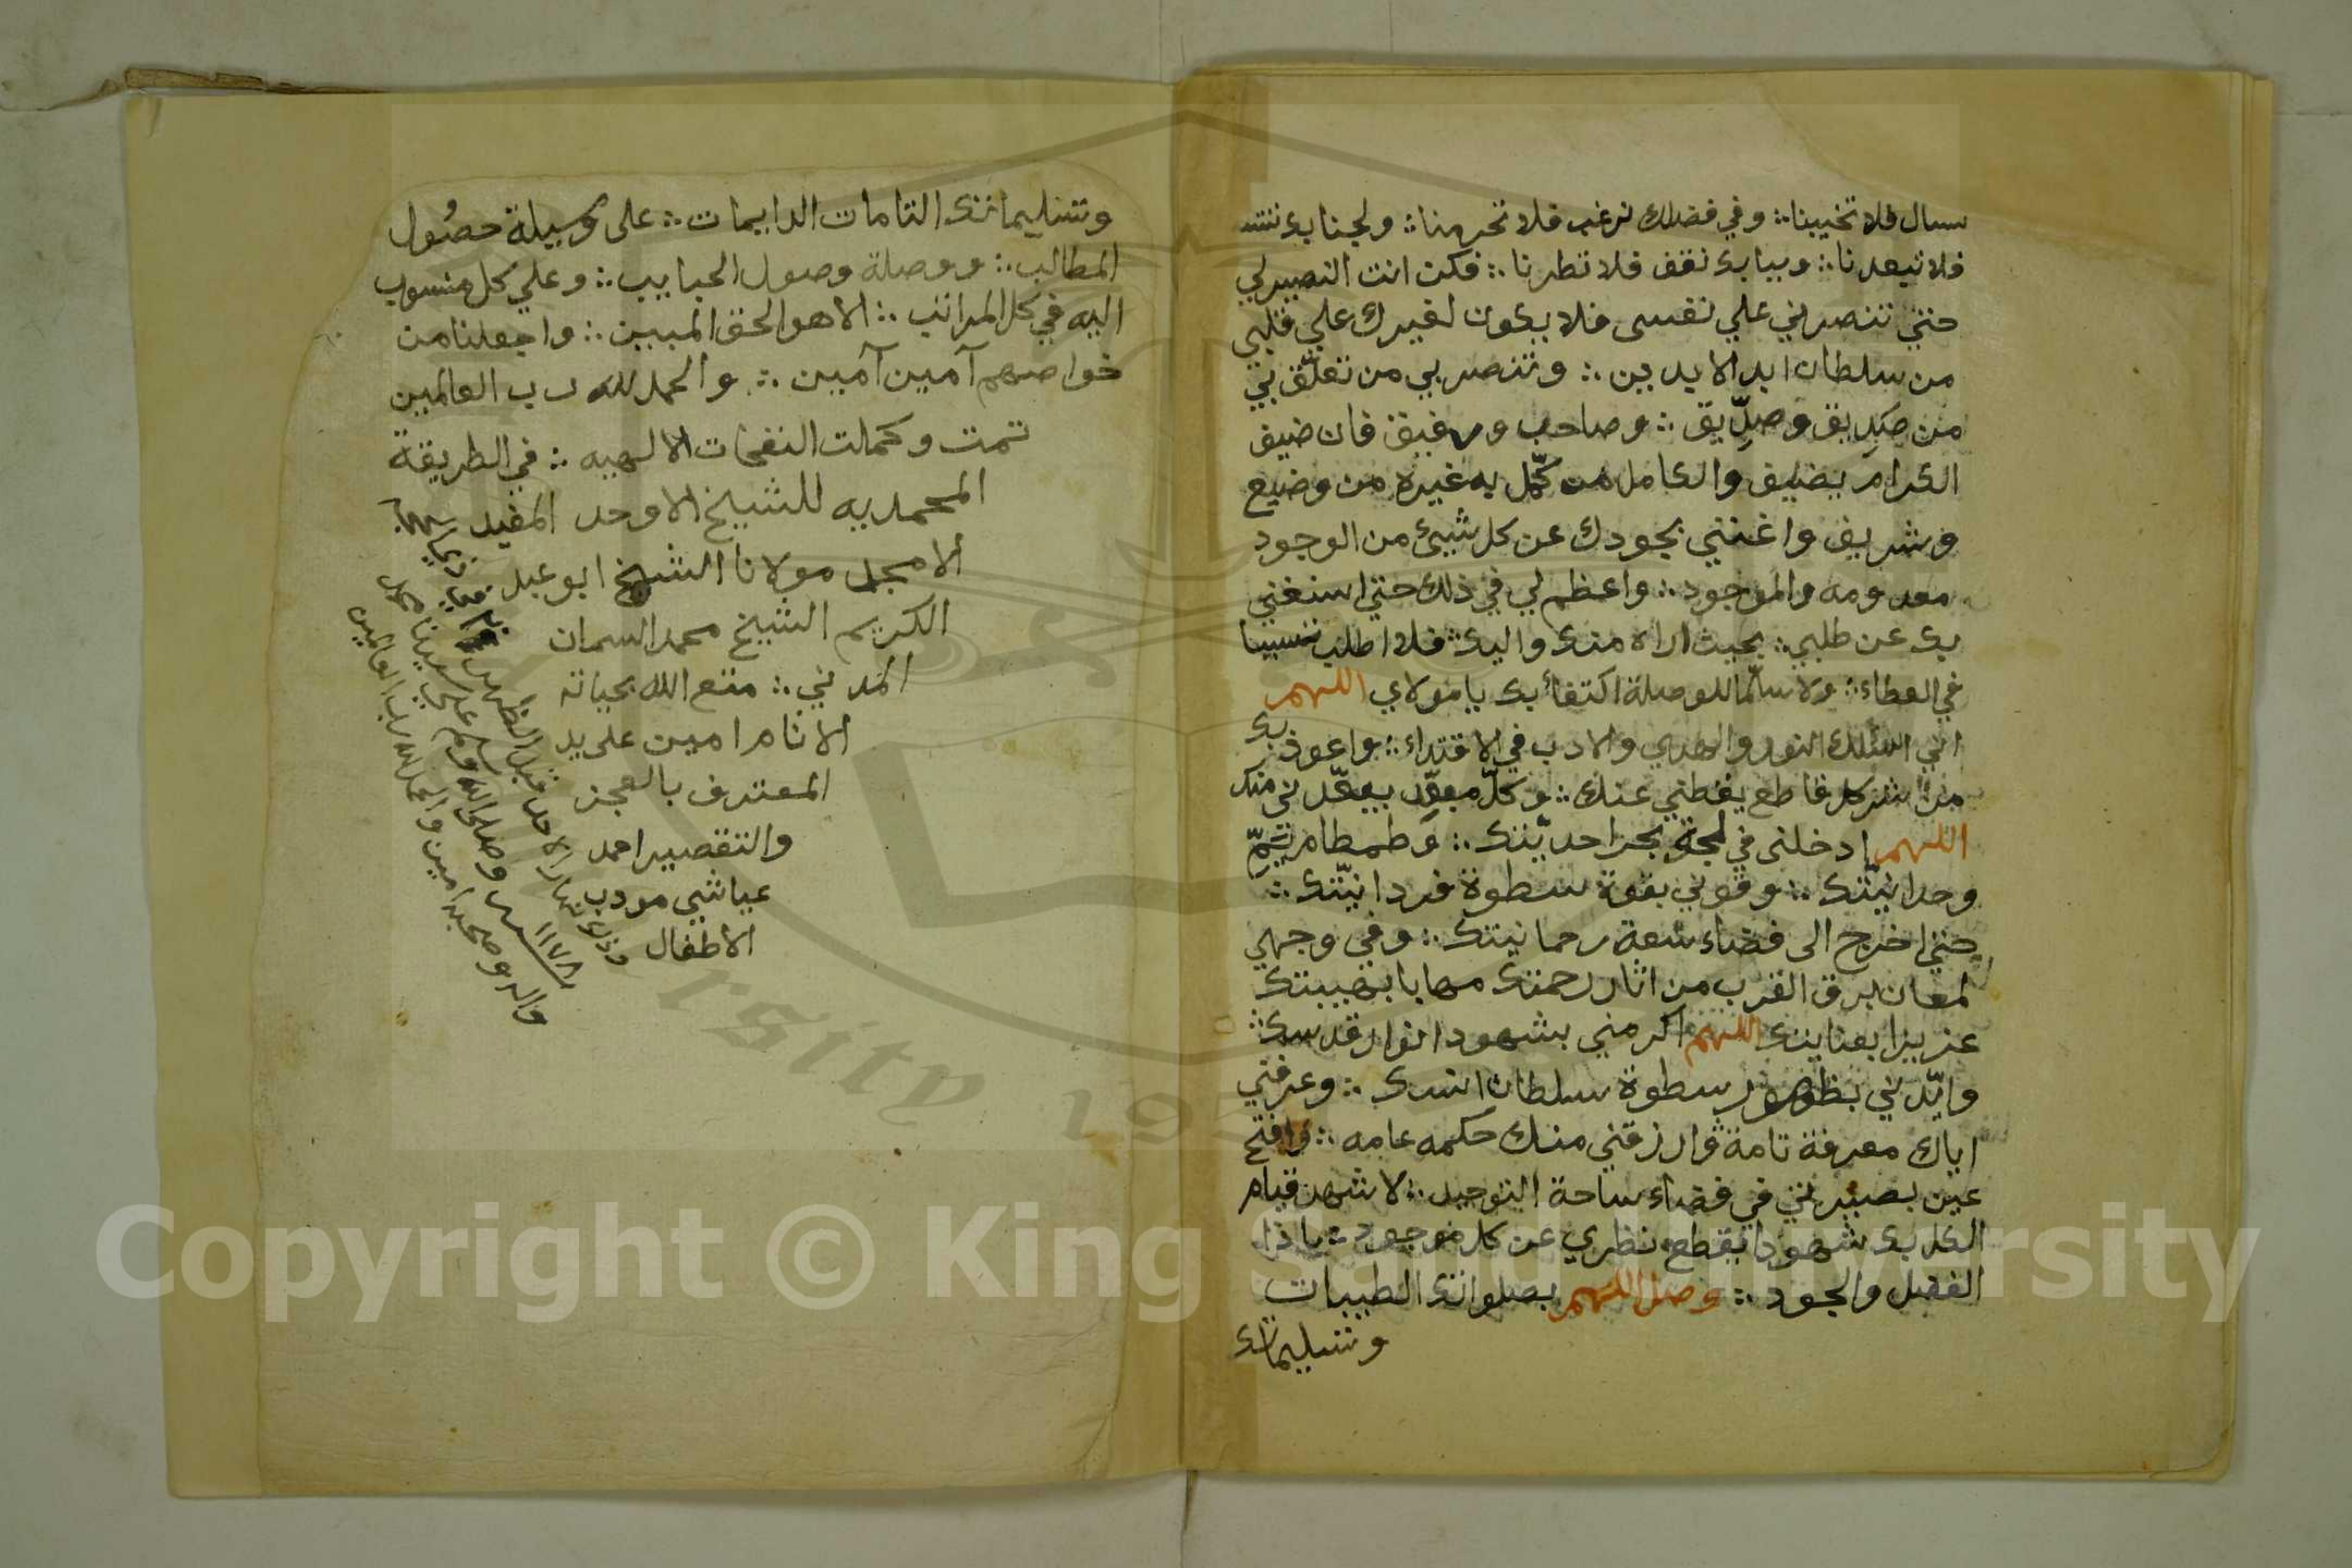 سال فلا تخيبنا ∴ وفي فضلك نرغب فلا تحرمنا ∴ ولجنابك ننتسب
فلا تبعدنا ∴ وببابك نقف فلا تطردنا ∴ فكن انت النصير لي
حتي تنصرني علي نفسى فلا يكون لغيرك علي قلبي
من سلطان ابد الابدين ∴ وتنصر بي من تعلّق بي
من صَدِيق وصِدِّيق ∴ وصاحب ورفيق فان ضيف
الكرام يضيف والكامل من كمّل به غيره من وضيع
وشريف واغنني بجودك عن كل شيئ من الوجود
معدومه والموجود ∴ واعظم لي في ذلك حتي استغني
بك عن طلبي ∴ بحيث اراه منك واليك ∴ فلا اطلب تسببا
في العطاء ∴ ولا سلّما للوصلة اكتفاءً بك يا مولاي اللهم
اني اسئلك النور والهدي والادب في الاقتداء ∴ واعوذ بك
من شر كل قاطع يقطني عنك ∴ وكلّ مبعِّد يبعّدني منك
اللهم ادخلني في لجة بحر احديّتك ∴ وطمطام يَمِّ
وحدانيّتك ∴ وقوني بقوة سطوة فردانيّتك ∴
حتي اخرج الى فضاء سعة رحمانيتك ∴ وفي وجهي
لمعان برق القرب من اثار رحمتك مهابا بهيبتك
عزيزا بعنايتك اللهم اكرمني بشهود انوار قدسك ∴
وايّدني بظهور سطوة سلطان انسك ∴ وعرفني
اياك معرفة تامة وارزقني منك حكمه عامه ∴ وافتح
عين بصيرتي في فضاء ساحة التوحيد ∴ لاشهد قيام
الكل بك شهودا يقطع نظري عن كل موجود ∴ يا ذا
الفضل والجود ∴ وصل اللهم بصلواتك الطيبات
وتسليماتك
وتسليماتك التامات الدايمات ∴ على وسيلة حصُول
المطالب ∴ ووصلة وصول الحبايب ∴ وعلي كل منسوب
اليه في كل المراتب ∴ الاهو الحق المبين ∴ واجعلنا من
خواصهم آمين آمين ∴ والحمد لله رب العالمين
تمت وكملت النفحات الالهيه ∴ في الطريقة
المحمديه للشيخ الاوحد المفيد
الامجد مولانا الشيخ ابو عبد
الكريم الشيخ محمد السمان
المدني ∴ متع الله بحياته
الانام امين على يد
المعترف بالعجز
والتقصير احمد
عياشي مودب
الاطفال
نهار الاحد قبل الظهر
١١٧٨
وصلى الله وسلم علي سيدنا محمد
واله وصحبه امين والحمد لله رب العالمين
Copyright © King Saud University